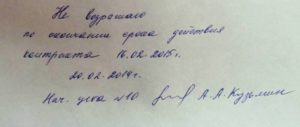 Не возражаю
по окончании срока действия
контракта 16.02.2015г.
20.02.2014г.
Нач. цеха №10 А.А.Кузьмин